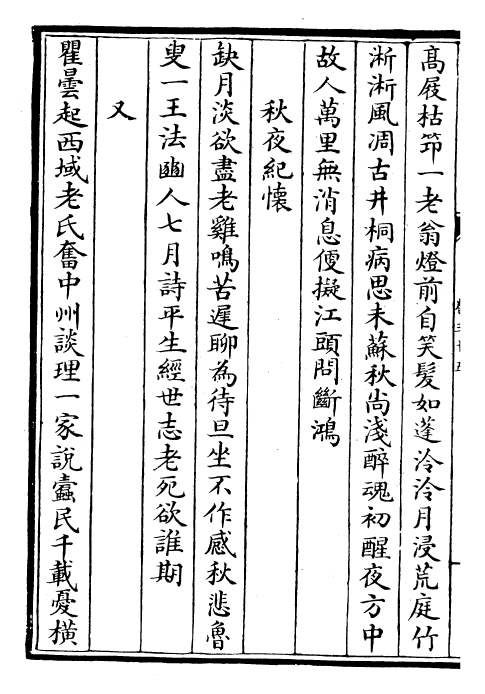 高屐枯笻一老翁燈前自笑髪如蓬泠泠月浸荒庭竹
淅淅風凋古井桐病思未蘇秋尚淺醉魂初醒夜方中
故人萬里無消息便擬江頭問斷鴻
秋夜紀懐
缺月淡欲盡老雞鳴苦遲聊為待旦坐不作感秋悲魯
叟一王法豳人七月詩平生經世志老死欲誰期
又
瞿曇起西域老氏奮中州談理一家說蠧民千載憂橫